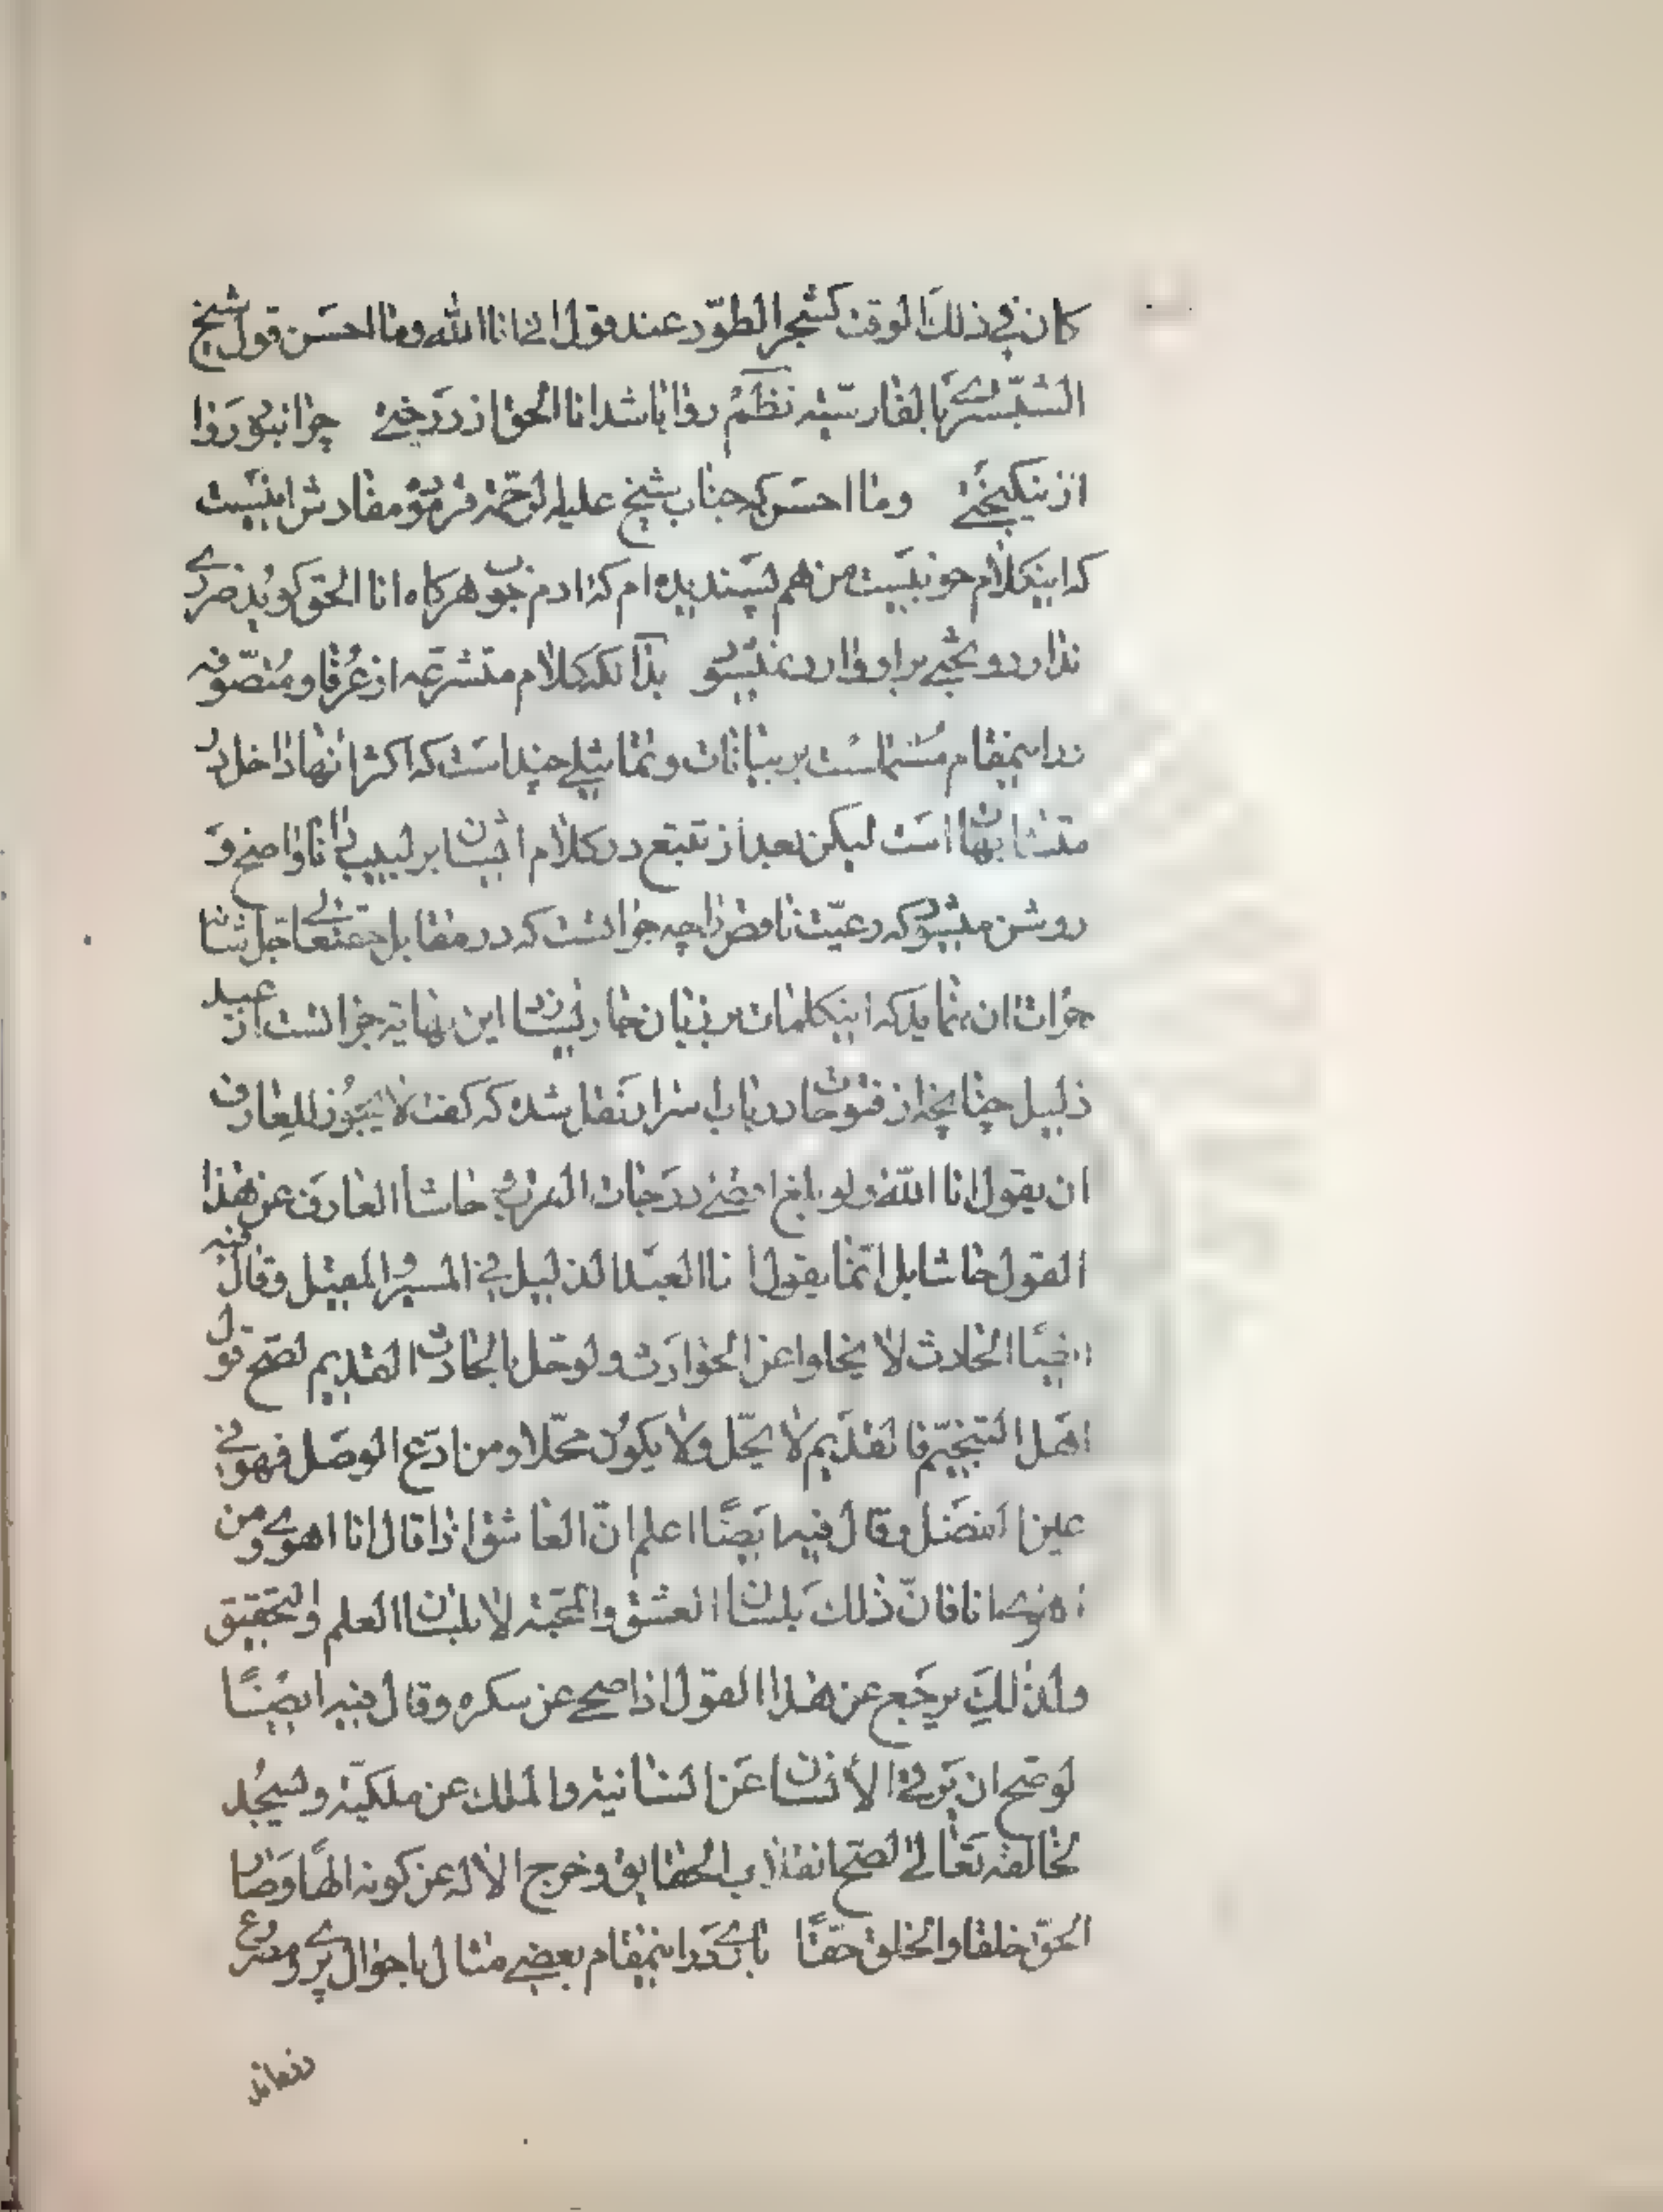 كان في ذلك الوقت كشجر الطوّر عند قول انی انا الله وما احسَن قول شيخ
الشبّستری بالفارسيّه نظمٌ روا باشد انا الحق از درختی چرا نبود رَوا
از نیکبختی وما احسَن که جناب شیخ علیه الرحمه فرموده مفادش اینست
که اینکلام خوبیست من هم پسندیده ام که ادم خوب هرکاه انا الحق کوید ضرری
ندارد و بحثی بر او وارد نمیشود بدآنکه کلام متشرعه از عُرفا و مُتصّوفه
در اینمقام مشتملست بر بیانات و تماثیلی چند است که اکثر انها داخل در
متشابهات است لیکن بعد از تتبع در کلام ایشان بر لبیب دانا واضح وَ
روشن میشود که رعیّت ناقص را چه جرائتست که در مقابل حقتعالی جل شانه
جرُات ان نماید که اینکلمات بر زبان جاری سازد این نهایة جرائتست از عبید
ذلیل چنانچه از فتوحات در باب اسرار نَقل شده که کفت لا یجوُز للعارف
ان یقول انا الله ولو بلغ اقصی درجات القرب حاشا العارف عن هذا
القول حاشا بل انّما یقول انا العبد الذلیل فی المسیر والمقیل وقال فیه
ایضًا الحادث لا یخلوا عن الحوادث ولو حل بالحادث القدیم لصحّ قول
اهل التجسّم فالقدیم لا یحّل ولا یکوُن محّلا ومن ادّعی الوصل فهو فی
عین الفصل وقال فیه ایضًا اعلم انّ العاشق اذا قال انا اهوی ومن
اهوی انا فانّ ذلك بلسان العشق والمحبّة لا بلسان العلم والتحقیق
ولذلكِ یرجَع عن هذا القول اذا صحی عن سکره وقال فیه ایضًا
لو صح ان یرقی الأنسان عَن انسانیة والملك عن ملکیّة ویتّحد
بخالقه تعَالیٰ لصّح انقلاب الحقایق وخرج الاله عن کونه الهًا وصَار
الحقّ خلقا والخلق حقّا باری دَر اینمقام بعضی مثال با حوال پری ومصروع
زده‌اند